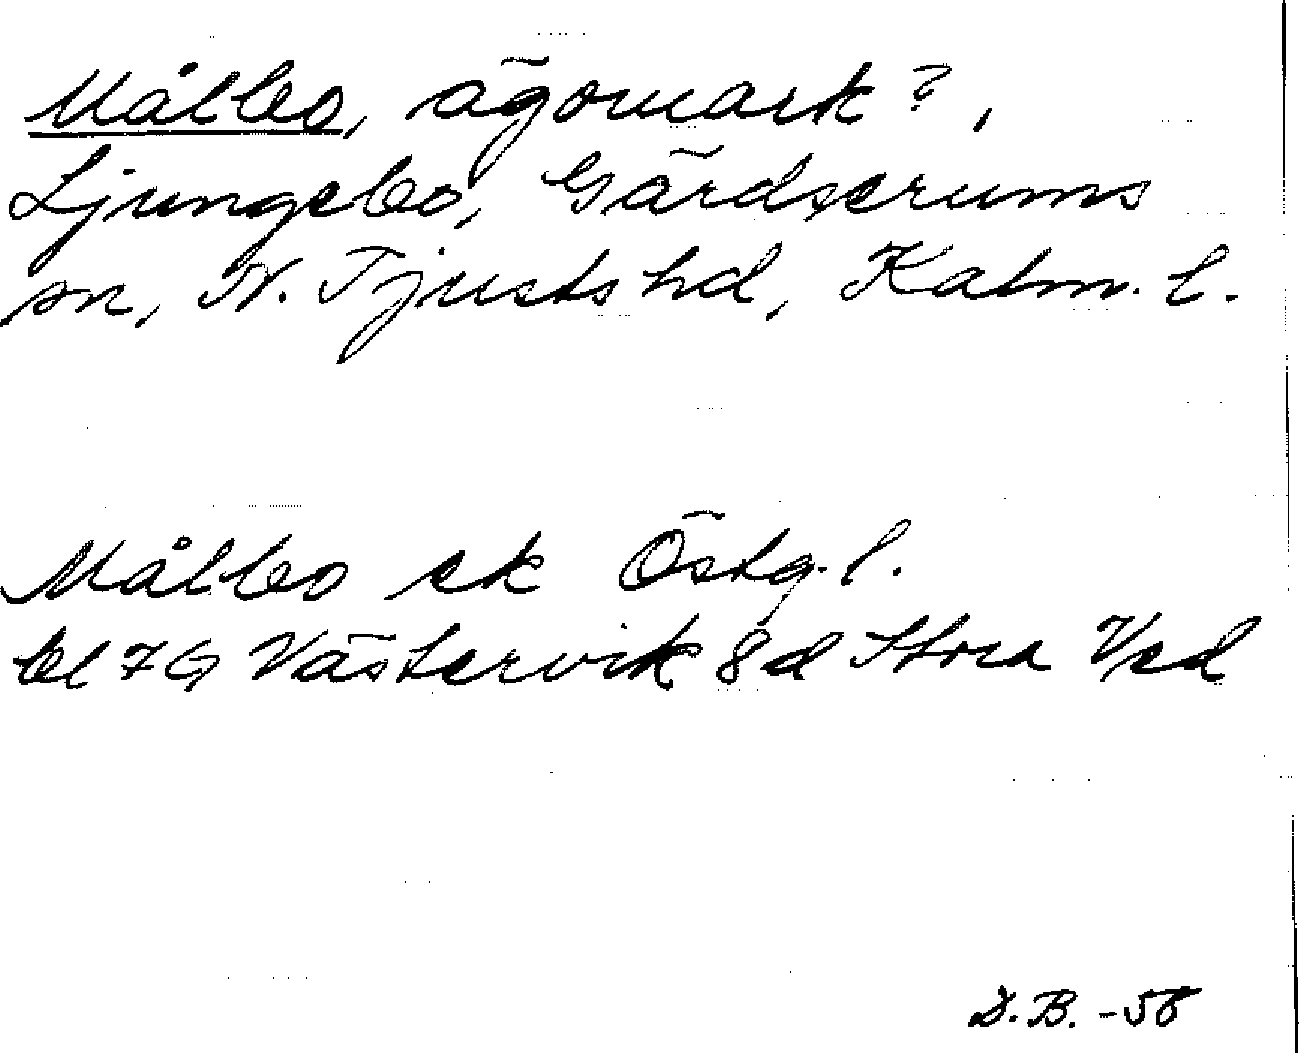 Målbo, ägomark?,
Ljungebo, Gärdserums
sn, N. Tjusts hd, Kalm. l.
Målbo ek Östg. l.
bl 7G Västervik 8d Stora Ved
D.B. -58